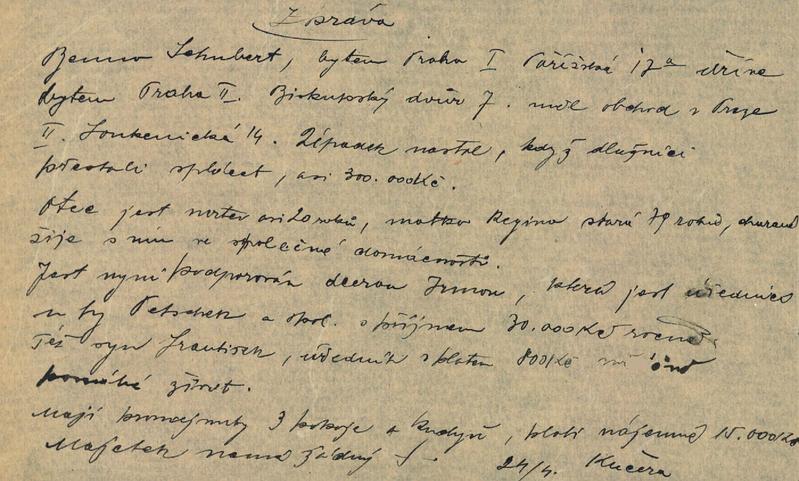 Zpráva
Benno Schubert, bytem Praha I Pařížská 17a dříve
bytem Praha II. Biskupský dvůr 7. měl obchod v Praze
II. Soukenická 14. Úpadek nastal, když dlužníci
přestali splácet, asi 300.000Kč.
Otec jest mrtev asi 20 roků, matka Regina stará 79 roků, churavá
žije s ním ve společné domácnosti.
Jest nyní podporován dcerou Irmou, která jest úřednicí
u fy Petschek a spol. s příjmem 30.000Kč ročně
Též syn František, úředník s platem 800Kč
pomáhá živit.
Mají pronajmuty 3 pokoje a kuchyň, platí nájemné 15.000Kč
Majetek nemá žádný.
24/4. Kučera